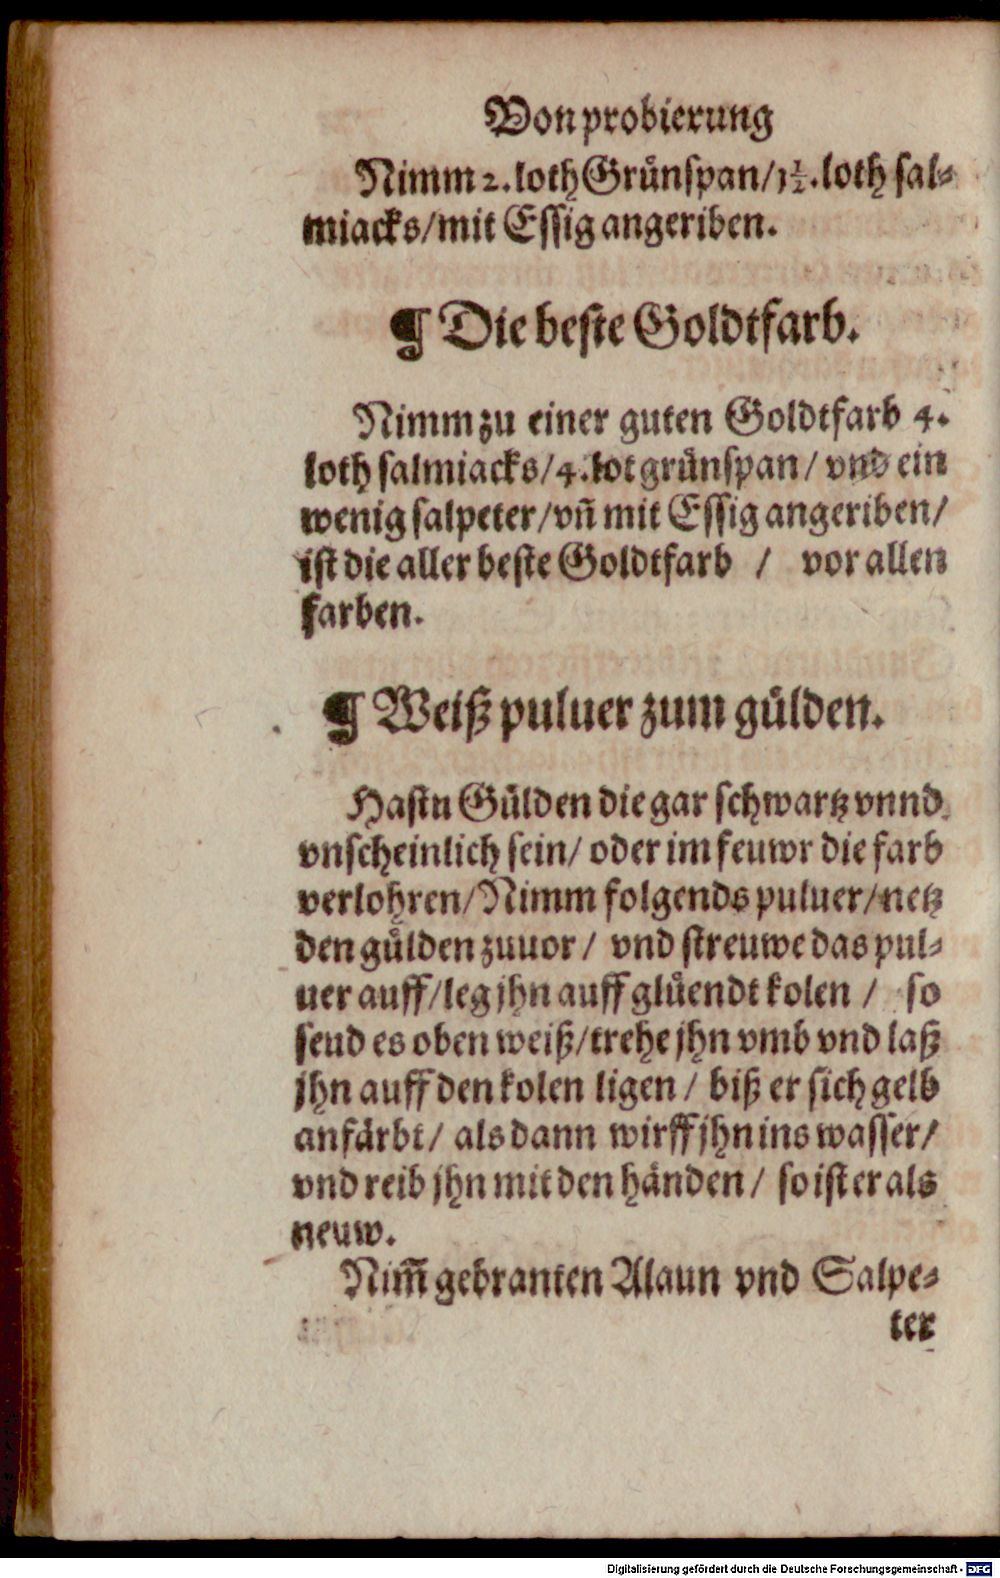 Von probierung
Nimm 2. loth Grünspan/ 1½. loth sal⸗
miacks/ mit Essig angeriben.
¶ Die beste Goldtfarb.
Nimm zu einer guten Goldtfarb 4.
loth salmiacks/ 4. lot grünspan/ vnd ein
wenig salpeter/ vñ mit Essig angeriben/
ist die aller beste Goldtfarb / vor allen
farben.
¶ Weiß puluer zum gülden.
Hastu Gülden die gar schwartz vnnd
vnscheinlich sein/ oder im feuwr die farb
verlohren/ Nimm folgends puluer/ netz
den gülden zuuor / vnd streuwe das pul⸗
uer auff/ leg jhn auff glüendt kolen / so
seud es oben weiß/ trehe jhn vmb vnd laß
jhn auff den kolen ligen / biß er sich gelb
anfärbt/ als dann wirff jhn ins wasser/
vnd reib jhn mit den händen / so ist er als
neuw.
Nim̃ gebranten Alaun vnd Salpe⸗
ter
Digitalisierung gefördert durch die Deutsche Forschungsgemeinschaft - DFG